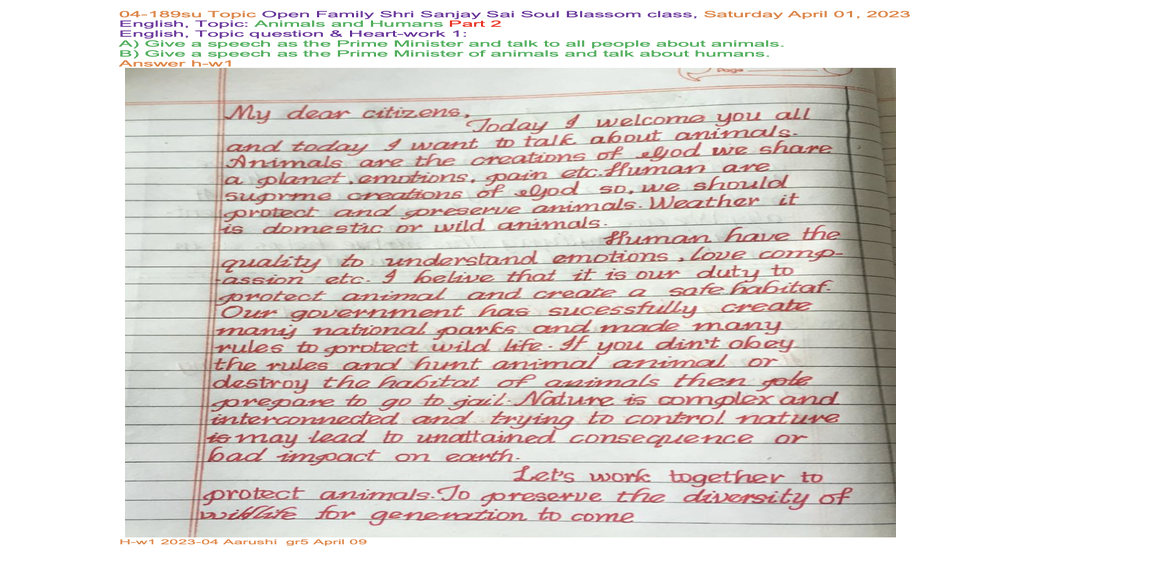 04-189su Topic Open Family Shri Sanjay Sai Soul Blassom class, Saturday April 01, 2023
English, Topic: Animals and Humans Part 2
English, Topic question & Heart-work 1:
A) Give a speech as the Prime Minister and talk to all people about animals.
B) Give a speech as the Prime Minister of animals and talk about humans.
Answer h-w1
Page
My dear citizens,
Today I welcome you all
and today I want to talk about animals.
Animals are the creations of God we share
a planet, emotions, pain etc. Human are
suprme creations of God so, we should
protect and preserve animals. Weather it
is domestic or wild animals.
Human have the
quality to understand emotions, love comp-
-assion etc. I belive that it is our duty to
protect animal and create a safe habitat.
Our government has sucessfully create
many national parks and made many
rules to protect wild life. If you din't obey
the rules and hunt animal animal or
destroy the habitat of animals then ple
prepare to go to jail. Nature is complex and
interconnected and trying to control nature
is may lead to unattained consequence or
bad impact on earth.
Let's work together to
protect animals. To preserve the diversity of
wildlife for generation to come
H-w1 2023-04 Aarushi gr5 April 09